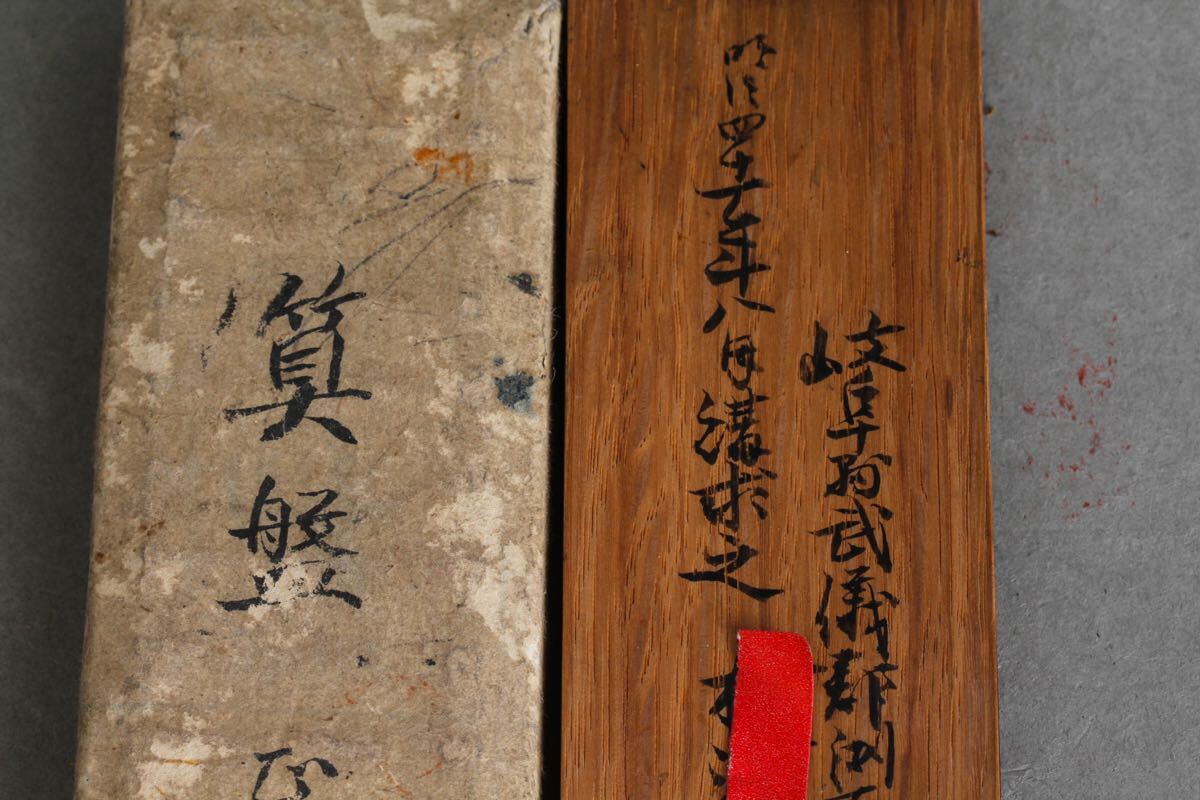 岐阜縣武儀郡洲
明治四十一年八月溝求之
算盤